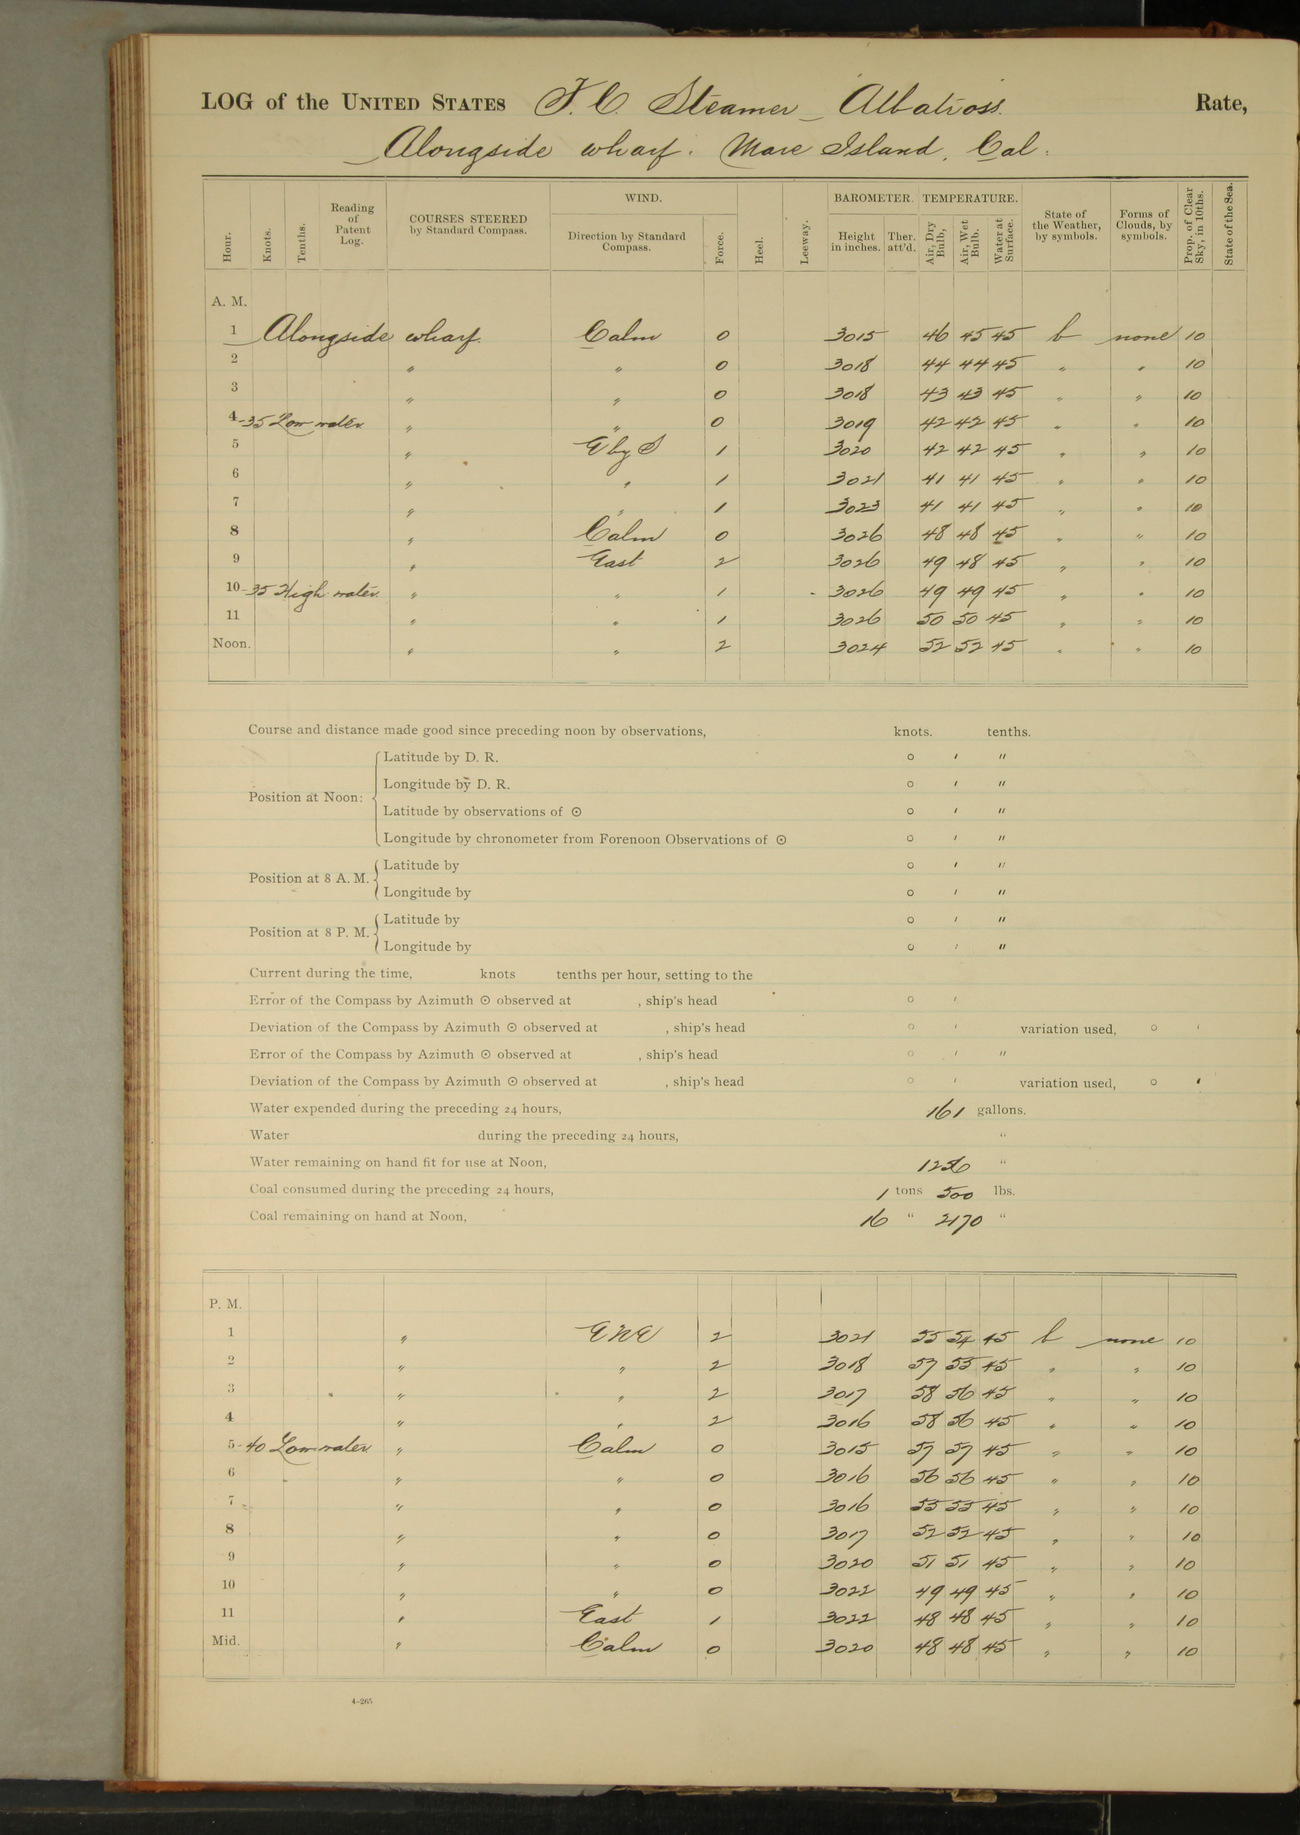 LOG of the UNITED STATES F. C. Steamer Albatross. Rate,
Alongside wharf. Mare Island, Cal.
Hour. Knots. Tenths. Reading of Patent Log. COURSES STEERED by Standard Compass. WIND. Direction by Standard Compass. Force. Heel. Leeway. BAROMETER. Height in inches. Ther. att'd. TEMPERATURE. Air, Dry Bulb, Air, Wet Bulb. Water at Surface. State of the Weather, by symbols. Forms of Clouds, by symbols. Prop. of Clear Sky, in 10ths. State of the Sea.
A. M.
1 Alongside wharf. Calm 0 3015 46 45 45 b none 10
2 " " 0 3018 44 44 45 " " 10
3 " " 0 3018 43 43 45 " " 10
4-35 Low water " " 0 3019 42 42 45 " " 10
5 " E by S 1 3020 42 42 45 " " 10
6 " " 1 3021 41 41 45 " " 10
7 " " 1 3023 41 41 45 " " 10
8 " Calm 0 3026 48 48 45 " " 10
9 " East 2 3026 49 48 45 " " 10
10-35 High water " " 1 3026 49 49 45 " " 10
11 " " 1 3026 50 50 45 " " 10
Noon. " " 2 3024 52 52 45 " " 10
Course and distance made good since preceding noon by observations, knots. tenths.
Position at Noon:
Latitude by D. R. ° ′ ″
Longitude by D. R. ° ′ ″
Latitude by observations of ☉ ° ′ ″
Longitude by chronometer from Forenoon Observations of ☉ ° ′ ″
Position at 8 A. M.
Latitude by ° ′ ″
Longitude by ° ′ ″
Position at 8 P. M.
Latitude by ° ′ ″
Longitude by ° ′ ″
Current during the time, knots tenths per hour, setting to the
Error of the Compass by Azimuth ☉ observed at , ship's head ° ′
Deviation of the Compass by Azimuth ☉ observed at , ship's head ° ′ variation used, ° ′
Error of the Compass by Azimuth ☉ observed at , ship's head ° ′ ″
Deviation of the Compass by Azimuth ☉ observed at , ship's head ° ′ variation used, ° ′
Water expended during the preceding 24 hours, 161 gallons.
Water during the preceding 24 hours, "
Water remaining on hand fit for use at Noon, "
Coal consumed during the preceding 24 hours, 1 tons 500 lbs.
Coal remaining on hand at Noon, 16 " 2170 "
P. M.
1 " ENE 2 3021 55 54 45 b none 10
2 " " 2 3018 57 55 45 " " 10
3 " " 2 3017 58 56 45 " " 10
4 " " 2 3016 58 56 45 " " 10
5-40 Low water " Calm 0 3015 57 57 45 " " 10
6 " " 0 3016 56 56 45 " " 10
7 " " 0 3016 55 55 45 " " 10
8 " " 0 3017 52 52 45 " " 10
9 " " 0 3020 51 51 45 " " 10
10 " " 0 3022 49 49 45 " " 10
11 " East 1 3022 48 48 45 " " 10
Mid. " Calm 0 3020 48 48 45 " " 10
4-265